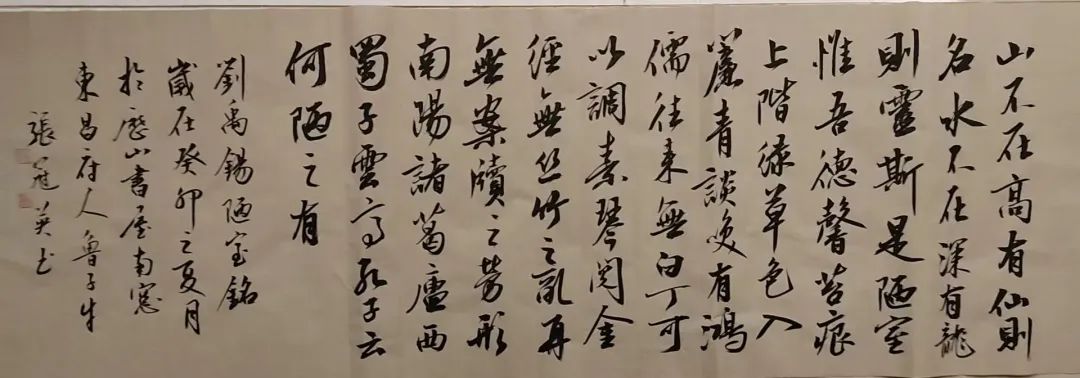 山不在高有仙則
名水不在深有龍
則靈斯是陋室
惟吾德馨苔痕
上階緑草色入
簾青談笑有鴻
儒往来無白丁可
以調素琴閲金
經無丝竹之亂耳
無案牘之勞形
南陽諸葛廬西
蜀子雲亭孔子云
何陋之有
劉禹錫陋室銘
歲在癸卯之夏月
於歷山書屋南窓
東昌府人魯子牛
張冠英书